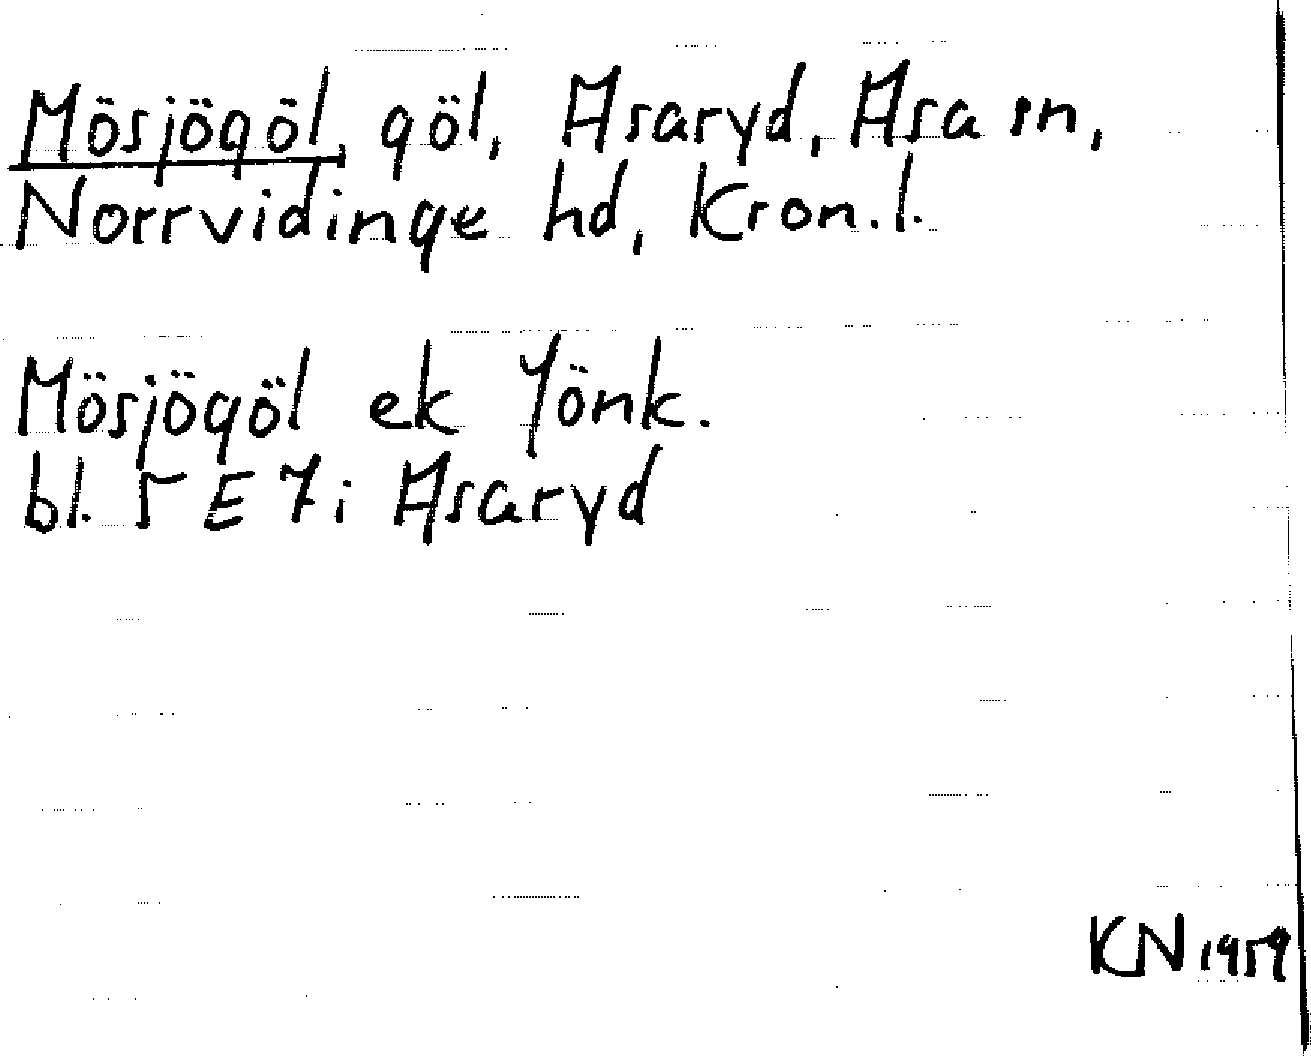 Mösjögöl, göl, Asaryd, Asa sn,
Norrvidinge hd, Kron.l.
Mösjögöl ek Jönk.
bl. 5 E 7i Asaryd
KN 1959